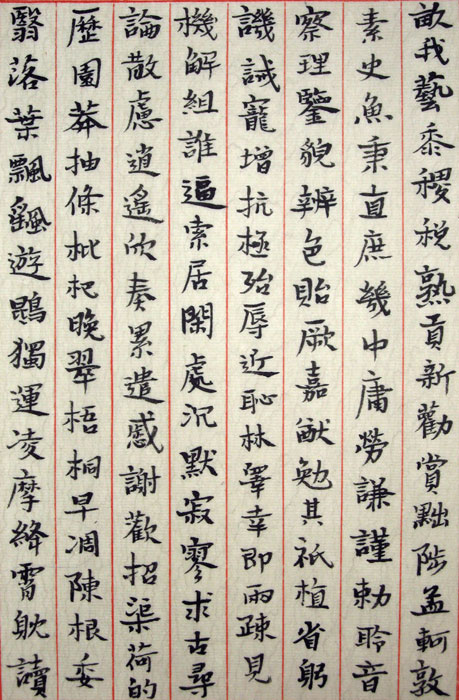 畝我藝黍稷稅熟貢新勸賞黜陟孟軻敦
素史魚秉直庶幾中庸勞謙謹勅聆音
察理鑒貌辨色貽厥嘉猷勉其祗植省躬
譏誡寵增抗極殆辱近恥林皋幸即兩疎見
機解組誰逼索居閑處沉默寂寥求古尋
論散慮逍遙欣奏累遣慼謝歡招渠荷的
歷園莽抽條枇杷晚翠梧桐早凋陳根委
翳落葉飄颻遊鵾獨運凌摩絳霄耽讀